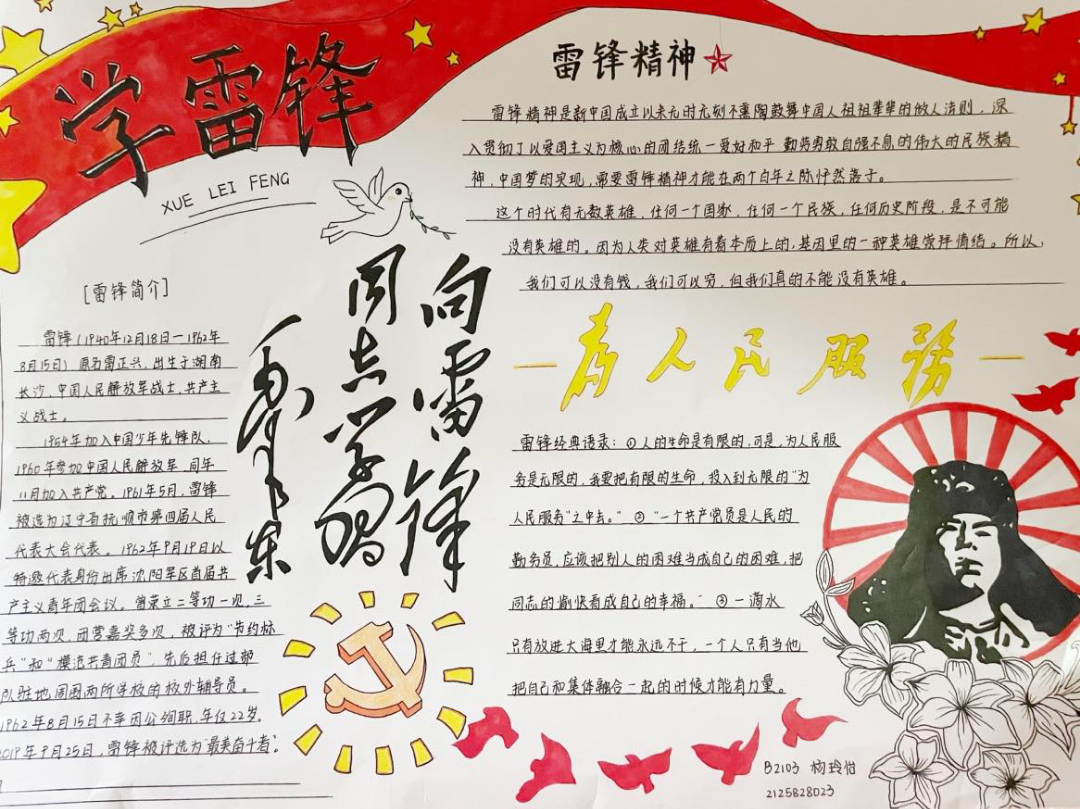 学雷锋
XUE LEI FENG
[雷锋简介]
雷锋(1940年12月18日一1962年
8月15日)原名雷正兴,出生于湖南
长沙,中国人民解放军战士,共产主
义战士。
1954年加入中国少年先锋队,
1960年参加中国人民解放军,同年
11月加入共产党。1961年5月,雷锋
被选为辽宁省抚顺市第四届人民
代表大会代表。1962年9月19日以
特邀代表身份出席沈阳军区首届共
产主义青年团会议。曾荣立二等功一次,三
等功两次,团营嘉奖多次,被评为"节约标
兵"和"模范共青团员",先后担任过部
队驻地周围两所学校的校外辅导员。
1962年8月15日不幸因公殉职,年仅22岁。
2019年9月25日,雷锋被评选为"最美奋斗者"。
向雷锋
同志学习
毛泽东
雷锋精神
雷锋精神是新中国成立以来无时无刻不熏陶鼓舞中国人祖祖辈辈的做人法则,深
入贯彻了以爱国主义为核心的团结统一爱好和平 勤劳勇敢自强不息的伟大的民族精
神,中国梦的实现,需要雷锋精神才能在两个百年之际怦然落子。
这个时代有无数英雄,任何一个国家,任何一个民族,任何历史阶段,是不可能
没有英雄的。因为人类对英雄有着本质上的,基因里的一种英雄崇拜情结。所以,
我们可以没有钱,我们可以穷,但我们真的不能没有英雄。
为人民服務
雷锋经典语录:①人的生命是有限的,可是,为人民服
务是无限的,我要把有限的生命,投入到无限的"为
人民服务"之中去。"②"一个共产党员是人民的
勤务员,应该把别人的困难当成自己的困难,把
同志的愉快看成自己的幸福。"③一滴水
只有放进大海里才能永远不干,一个人只有当他
把自己和集体融合一起的时候才能有力量。
B2103 杨玲怡
2125828023